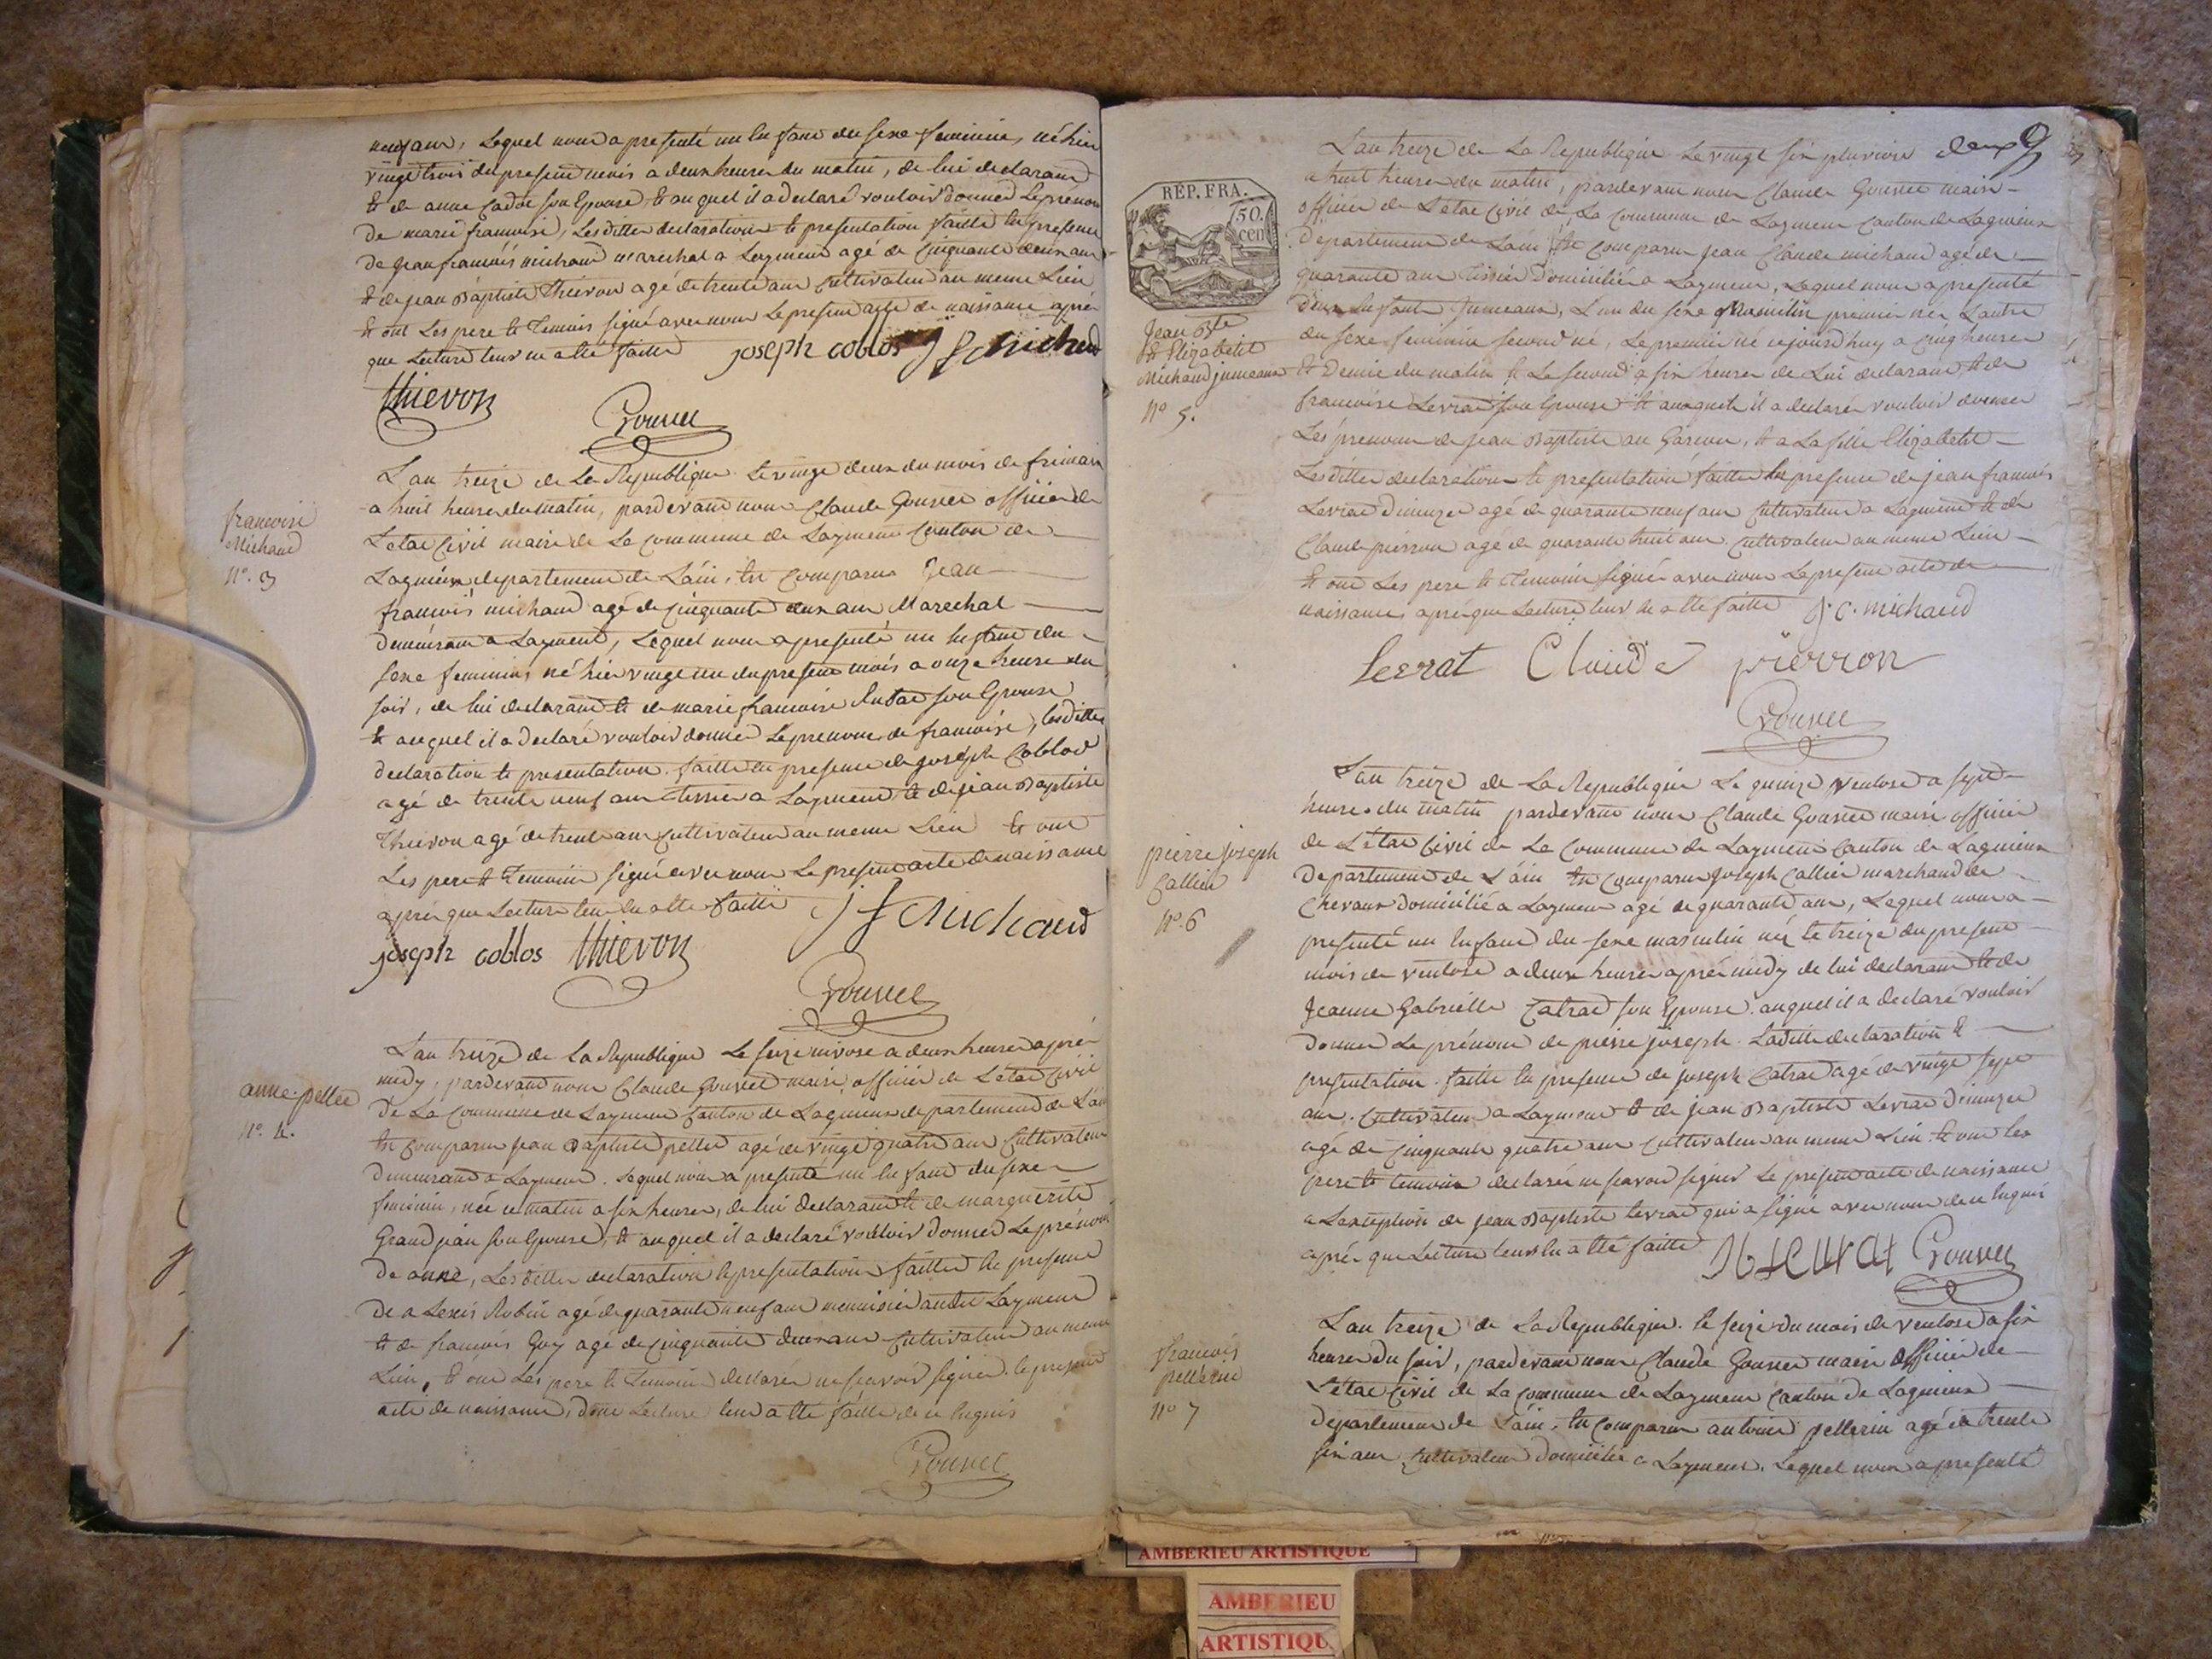 neuf ans, Lequel nous a presenté un Enfant du sexe feminin, né hier
vingt trois du present mois a deux heures du matin, de lui declarant
et de anne Cador son Epouse et auquel il a declaré vouloir donner Le prénom
de marie francoise, Lesdittes declaration et presentation faitte En presence
de jean francois michaud marechal a Leyment agé de Cinquante deux ans
et de jean Baptiste Thievon agé de trente ans Cultivateur au meme Lieu
et ont Les pere et Temoins signé avec nous Le present acte de naissance aprés
que Lecture leur en a été faitte joseph coblos J f Michaud
thievon
Gouvee
L'an treize de La Republique Le vingt deux du mois de frimaire
a huit heures du matin, pardevant nous Claude Gouvee officier de
L'etat Civil maire de La Commune de Layment Canton de
Lagnieux departement de L'ain, En Comparu Jean
francois michaud agé de Cinquante deux ans Marechal
demeurant a Layment, Lequel nous a presenté un Enfant du
sexe feminin, né hier vingt un du present mois a onze heure du
soir, de lui declarant et de marie francoise son Epouse
et auquel il a declaré vouloir donner Le prenom de francoise, Lesdittes
declaration et presentation faitte En presence de joseph Coblod
agé de trente neuf ans tissier a Layment et de jean Baptiste
Thievon agé de trente ans Cultivateur au meme Lieu Et ont
Les pere et Temoins signé avec nous Le present acte de naissance
aprés que Lecture leur En a été faitte J f Michaud
joseph coblos thievon
Gouvee
francoise
Michaud
N°. 3
L'an treize de La Republique Le seize nivose a deux heures aprés
midy, pardevant nous Claude Gouvee maire officier de L'etat Civil
de La Commune de Layment Canton de Lagnieux departement de L'ain
En Comparu jean Baptiste pellet agé de vingt quatre ans Cultivateur
demeurant a Layment. Lequel nous a presenté un Enfant du sexe
feminin, née ce matin a six heures, de lui declarant et de marguerite
Grand jean son Epouse, et auquel il a declaré vouloir donner Le prénom
de anne, Lesdittes declaration et presentation faitte En presence
de aLexis Robin agé de quarante neuf ans menuisier audit Layment
et de francois Guy agé de Cinquante deux ans Cultivateur au meme
Lieu, et ont Les pere et Temoins declarés ne scavoir signer le present
acte de naissance, dont Lecture leur a été faitte de ce Enquis
Gouvee
anne pellet
N°. 4.
deux 9
L'an treize de La Republique Le vingt six pluviose
a huit heures du matin, pardevant nous Claude Gouvee maire
officier de L'etat Civil de La Commune de Layment Canton de Lagnieux
Departement de L'ain En Comparu jean Claude michaud agé de
quarante ans Tissier Domicilié a Layment, Lequel nous a presenté
deux Enfants Jumeaux, L'un du sexe Masculin premier né, L'autre
du sexe feminin second né, Le premier né cejourd'huy a Cinq heures
et Demie du matin et Le second a six heures de Lui declarant et de
francoise Levrat son Epouse et auxquels il a declaré vouloir donner
Les prenoms de jean Baptiste au Garcon, et a La fille Elizabeth
Lesdittes declaration et presentation faitte En presence de jean francois
Levrat dimuzet agé de quarante neuf ans Cultivateur a Layment et de
Claude pierron agé de quarante huit ans Cultivateur au meme Lieu
Et ont Les pere et Temoins signé avec nous Le present acte de
naissance, aprés que Lecture leur En a été faitte J. C. michaud
Levrat Claude pierron
Gouvee
RÉP. FRA.
50.
cen
Jean Bte
et Elizabeth
Michaud jumeaux
N° 5.
L'an treize de La Republique Le quinze ventose a sept
heures du matin pardevant nous Claude Gouvee maire officier
de L'etat Civil de La Commune de Layment Canton de Lagnieux
Departement de L'ain En Comparu joseph Callier marchand de
Chevaux domicilié a Layment agé de quarante ans, Lequel nous a
presenté un Enfant du sexe masculin né le treize du present
mois de ventose a deux heures aprés midy de lui declarant et de
Jeanne Gabrielle Catrat son Epouse, auquel il a declaré vouloir
donner Le prénom de pierre joseph. Laditte declaration et
presentation faitte En presence de joseph Catrat agé de vingt sept
ans Cultivateur a Layment et de jean Baptiste Levrat dimuzet
agé de Cinquante quatre ans Cultivateur au meme Lieu et ont les
pere et temoins declarés ne scavoir signer Le present acte de naissance
a L'exception de jean Baptiste Levrat qui a signé avec nous de ce Enquis
aprés que Lecture leur En a été faitte Gouvee
pierre joseph
Callier
N° 6
L'an treize de La Republique. le seize du mois de ventose a six
heures du soir, pardevant nous Claude Gouvee maire officier de
L'etat Civil de La Commune de Layment Canton de Lagnieux
departement de L'ain, En Comparu antoine pellerin agé de trente
six ans Cultivateur domicilié a Layment. Lequel nous a presenté
francois
pellerin
N° 7
AMBERIEU ARTISTIQUE
AMBERIEU
ARTISTIQU